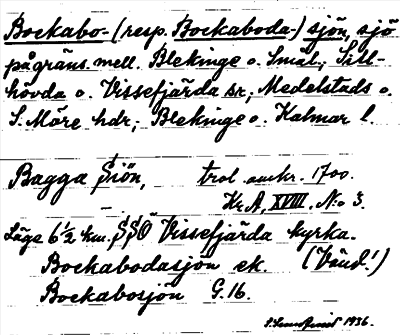 Bockabo- (resp. Bockaboda-) sjön, sjö
på gräns mell. Blekinge o. Smål.; Sill-
hövda o. Vissefjärda sr; Medelstads o.
S. Möre hdr; Blekinge o. Kalmar l.
Bagga Siön, trol. omkr. 1700.
Kr. A, XVIII. No 3.
Läge 6 1/2 km. SSO Vissefjärda kyrka.
Bockabodasjön ek. (Vänd!)
Bockabosjön G. 16.
1936.